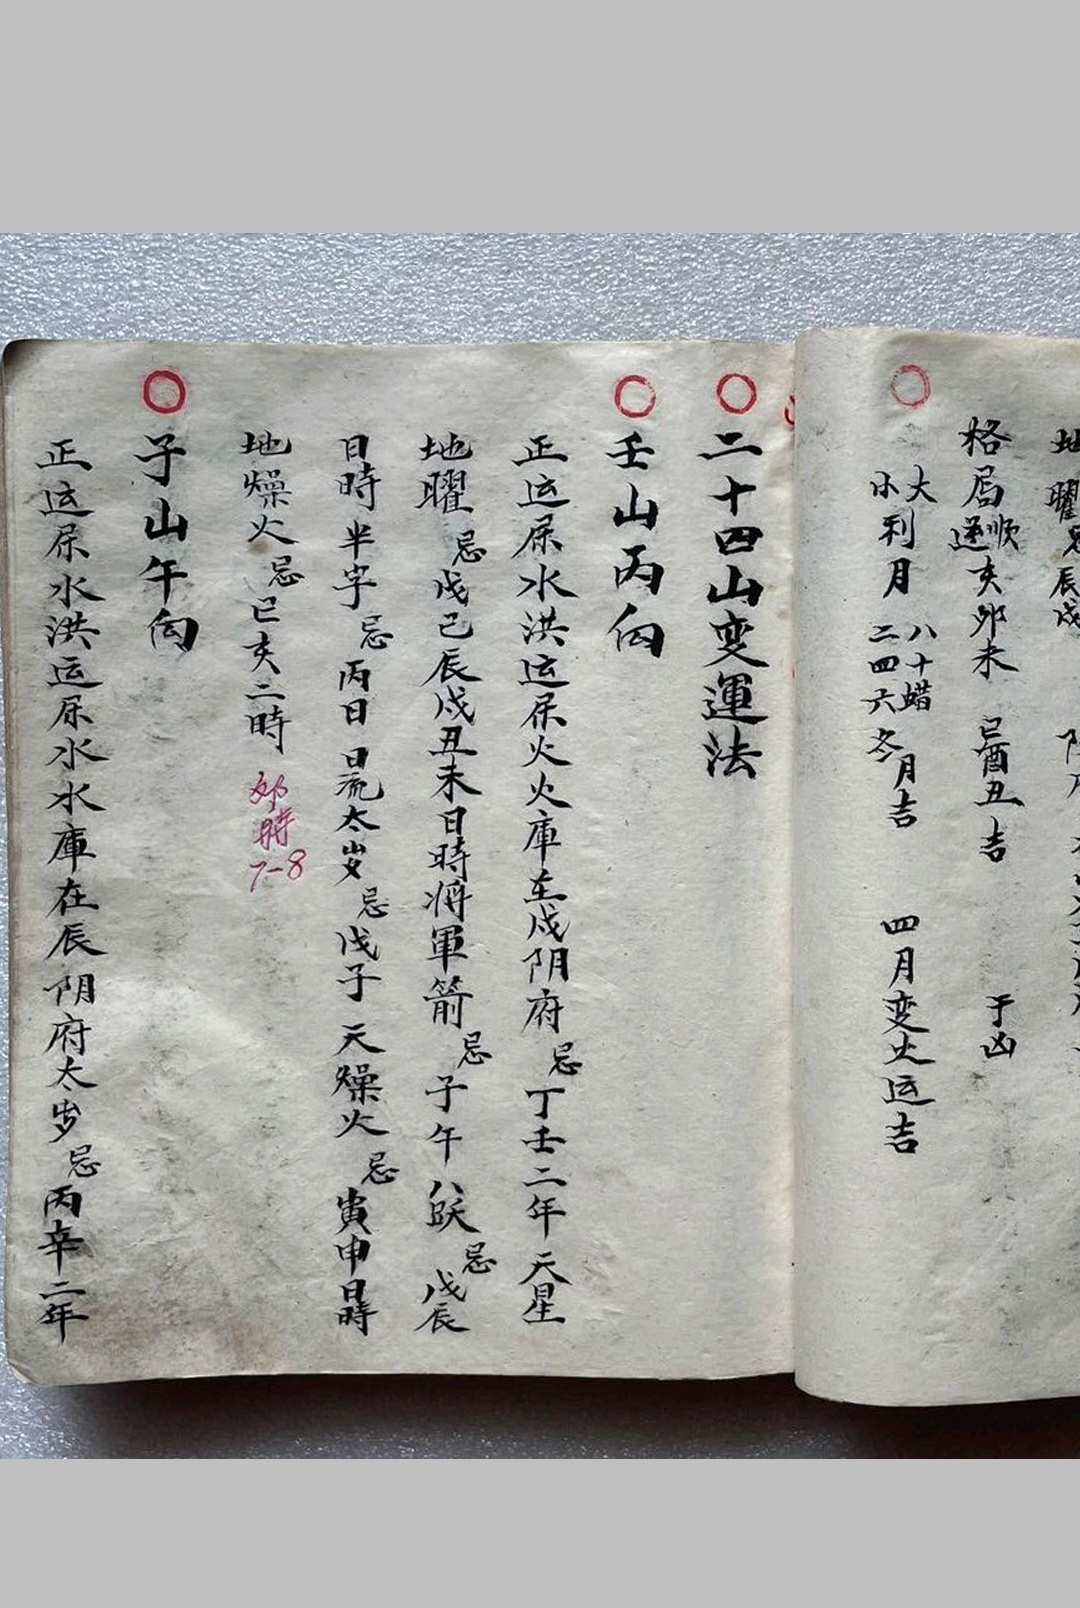 地曜忌辰戌
格局顺逐亥卯未 巳酉丑吉 于凶
大小利月 八十蜡二四六冬月吉 四月变火运吉
二十四山变運法
壬山丙向
正运属水洪运属火火庫在戌阴府忌丁壬二年天星
地曜忌戊己辰戌丑未日時将軍箭忌子午八煞忌戊辰
日時半字忌丙日日流太岁忌戊子天燥火忌寅申日時
地燥火忌巳亥二時 卯時7-8
子山午向
正运属水洪运属水水庫在辰阴府太岁忌丙辛二年